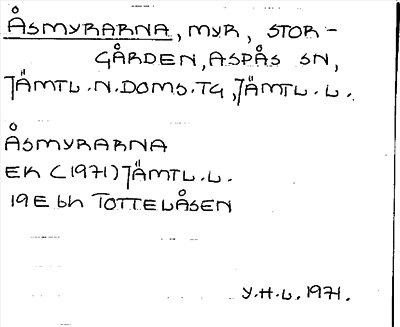 ÅSMYRARNA, MYR, STOR-
GÅRDEN, ASPÅS SN,
JÄMTL.N.DOMS.TG, JÄMTL.L.
ÅSMYRARNA
EK (1971) JÄMTL.L.
19E 6h TOTTELÅSEN
Y.H.L. 1971.